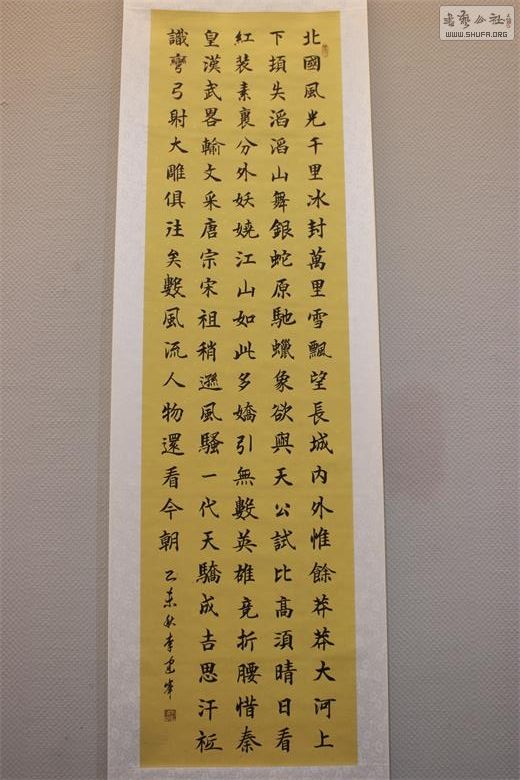 北國風光千里冰封萬里雪飄望長城内外惟餘莽莽大河上
下頂失滔滔山舞銀蛇原馳蠟象欲與天公試比高須晴日看
紅裝素裹分外妖嬈江山如此多嬌引無數英雄竞折腰惜秦
皇漢武畧輸文采唐宗宋祖稍遜風騷一代天驕成吉思汗衹
識彎弓射大雕俱往矣數風流人物還看今朝
乙未秋李建峰
书艺公社
WWW.SHUFA.ORG